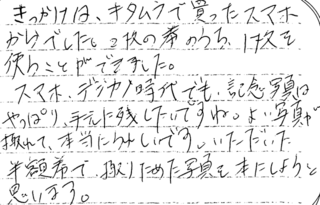 きっかけは、キタムラで買ったスマホ
かけでした。2枚の券のうち、1枚を
使うことができました。
スマホ、デジカメ時代でも、記念写真は
やっぱり、手元に残したいですね。よい写真が
撮れて、本当にうれしいです。いただいた
半額券で、撮りためた写真を本にしようと
思います。